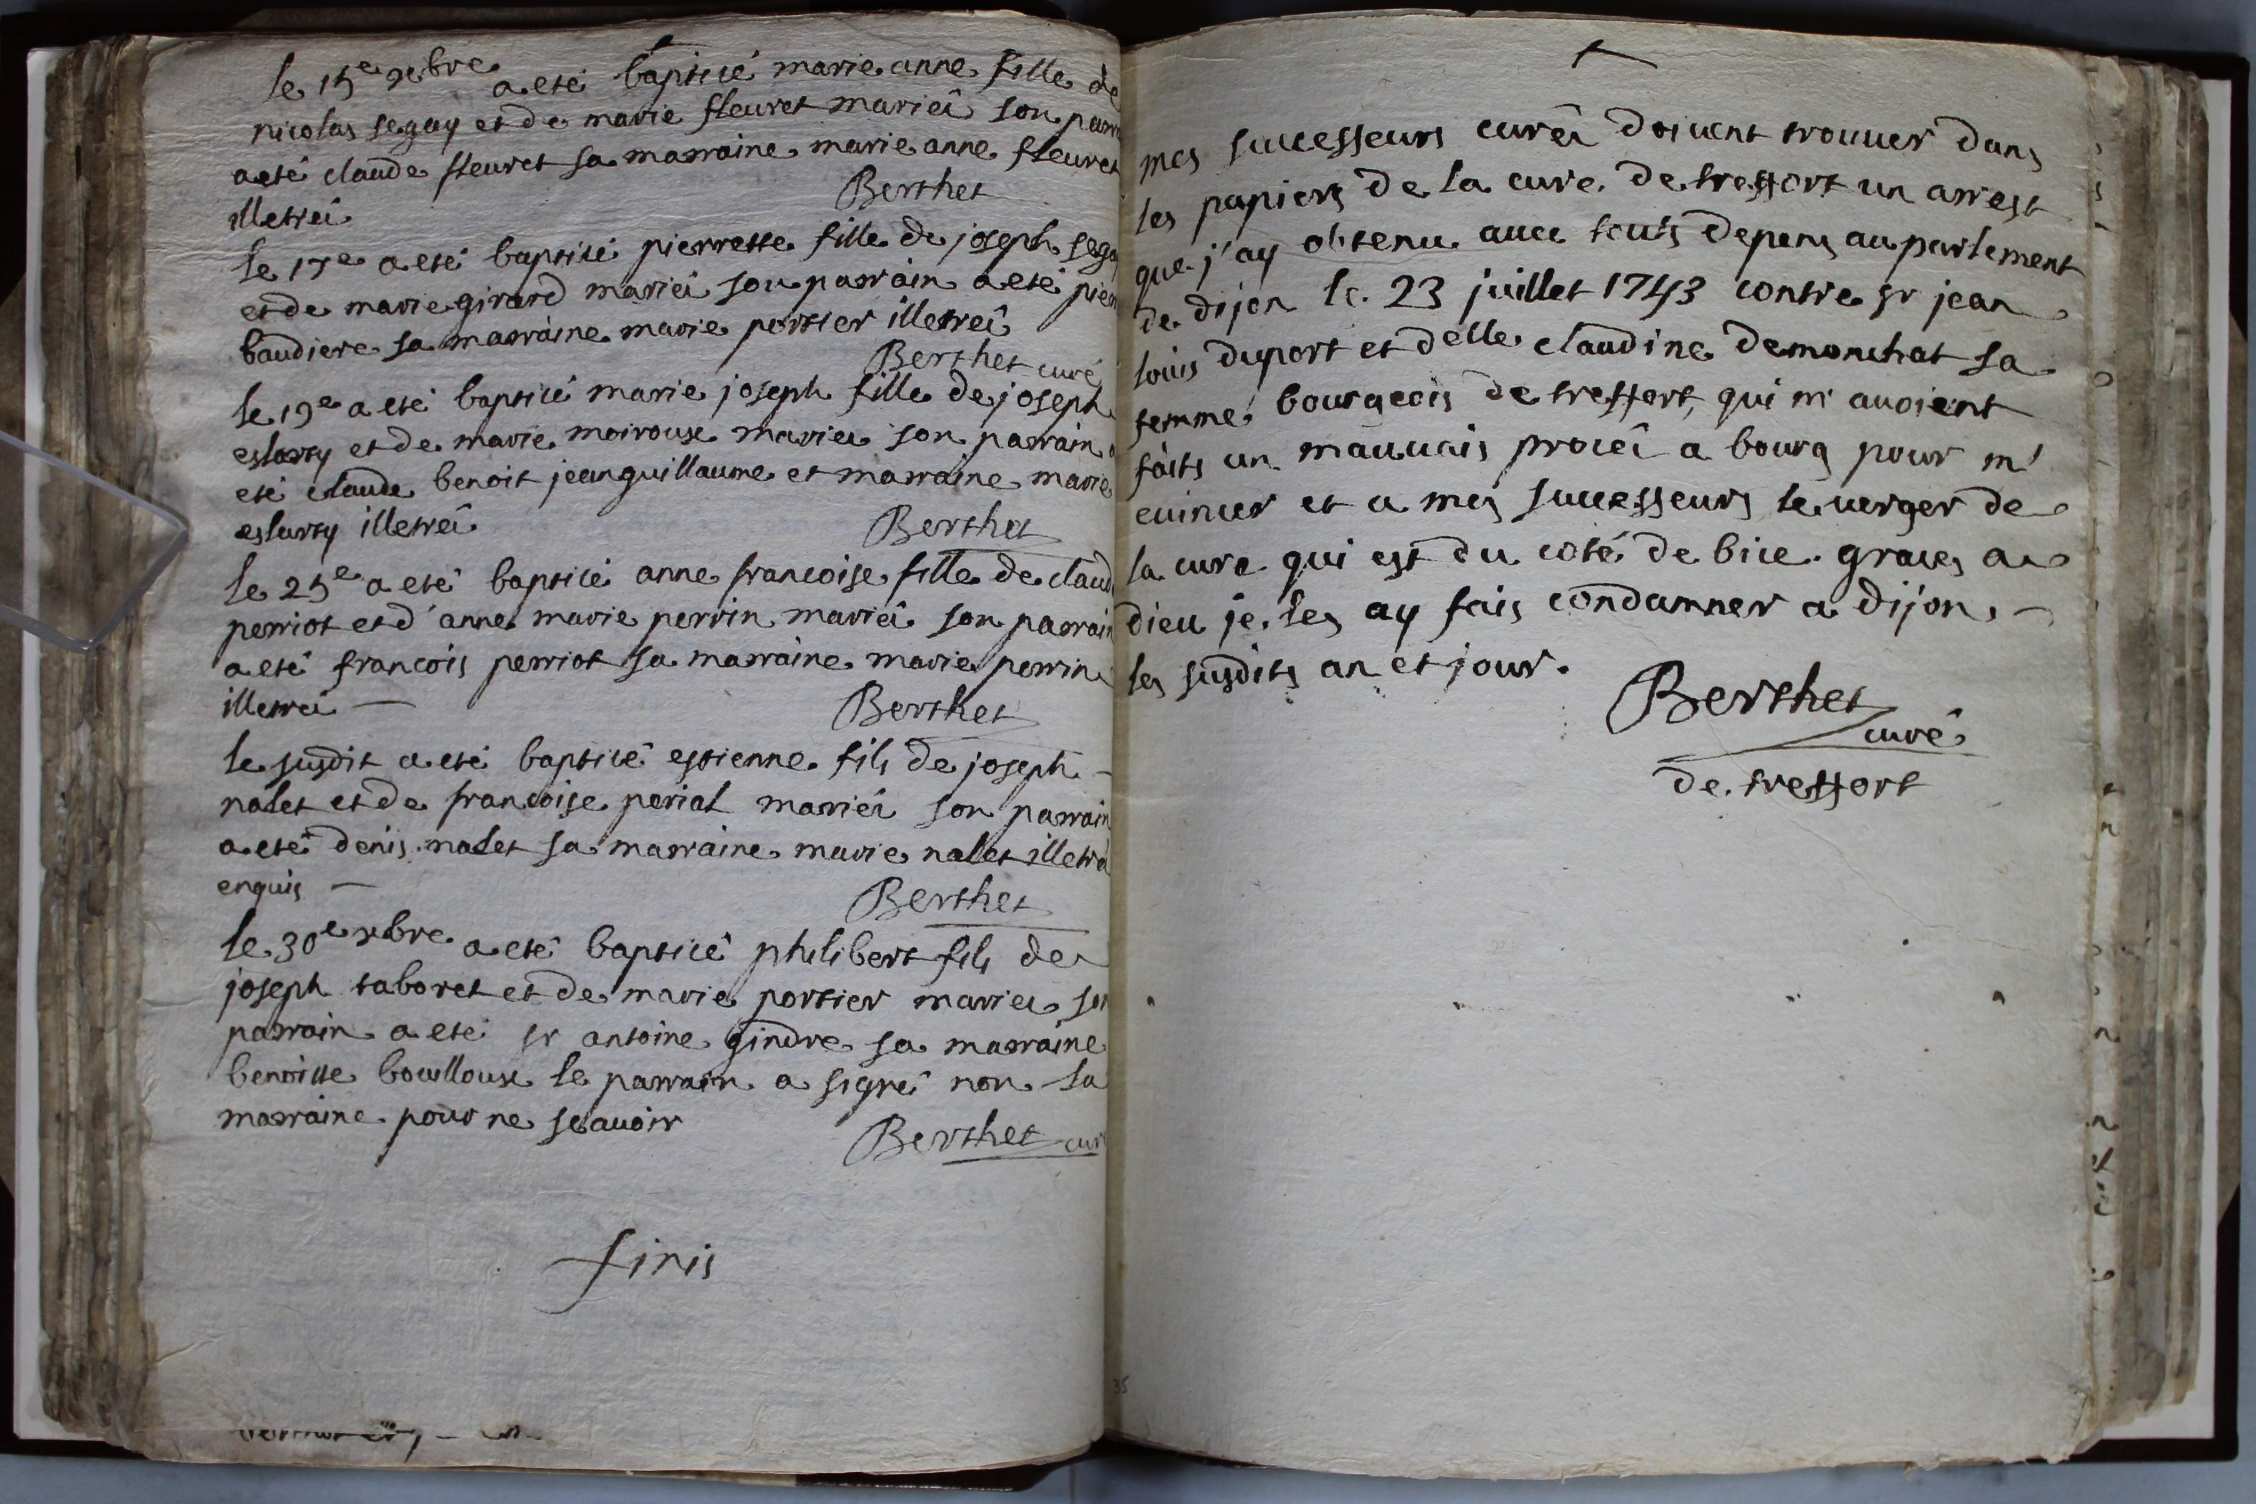 le 15e 9bre a eté baptisé marie anne fille de
nicolas segay et de marie fleuret mariéi son parr
a eté claude fleuret sa marraine marie anne fleuret
illetréi Berthet
le 17e a eté baptisé pierrette fille de joseph sega
et de marie girard mariéi son parrain a eté pier
baudiere sa marraine marie portier illetréi
Berthet curé
le 19e a eté baptisé marie joseph fille de joseph
eslarty et de marie moirouse mariéi son parrain a
eté claude benoit jeanguillaume et marraine marie
eslarty illetréi Berthet
le 25e a eté baptisé anne francoise fille de claud
perriot et d'anne marie perrin mariéi son parrain
a eté francois perriot sa marraine marie perrin
illetréi — Berthet
le susdit a eté baptisé estienne fils de joseph
nalet et de francoise perial mariéi son parrain
a eté denis nalet sa marraine marie nalet illetréi
enquis — Berthet
le 30e xbre a eté baptisé philibert fils de
joseph taboret et de marie portier mariéi son
parrain a eté sr antoine gindre sa marraine
benoitte bouillouse le parrain a signéi non la
marraine pour ne scavoir
Berthet cur
finis
mes successeurs curéi doivent trouver dans
les papiers de la cure de treffort un arrest
que j'ay obtenu avec touts depens au parlement
de dijon le 23 juillet 1743 contre sr jean
louis duport et delle claudine demonchat sa
femme bourgeois de treffort, qui m'avoient
faits un mauvais procéi a bourg pour m'
evincer et a mes successeurs le verger de
la cure qui est du coté de bise. graces a
dieu je les ay fais condamner a dijon
les susdits an et jour.
Berthet
curé
de treffort